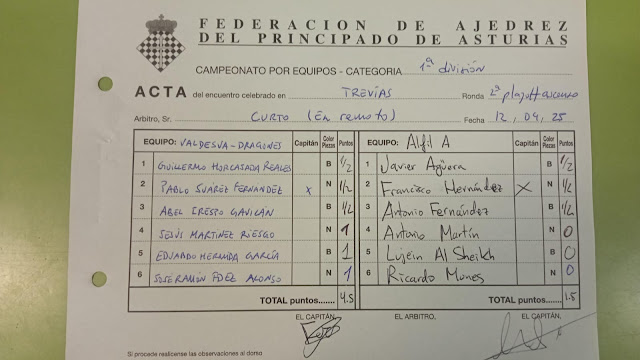 FEDERACION DE AJEDREZ
DEL PRINCIPADO DE ASTURIAS
CAMPEONATO POR EQUIPOS - CATEGORIA 1ª división
ACTA del encuentro celebrado en TREVÍAS Ronda 2ª playoff ascenso
Arbitro, Sr. CURTO (En remoto) Fecha 12, 04, 25
EQUIPO: VALDESVA-DRAGONES Capitán Color Piezas Puntos EQUIPO: Alfil A Capitán Color Piezas Puntos
1 GUILLERMO HORCAJADA REALES B 1/2 1 Javier Agüera B 1/2
2 PABLO SUAREZ FERNANDEZ x N 1/2 2 Francisco Hernández X N 1/2
3 ABEL CRESPO GAVILÁN B 1/2 3 Antonio Fernández B 1/2
4 JESÚS MARTINEZ RIESGO N 1 4 Antonio Martín N 0
5 EDUARDO HERMIDA GARCÍA B 1 5 Lujein Al Sheikh B 0
6 JOSE RAMÓN FDEZ ALONSO N 1 6 Ricardo Mones N 0
TOTAL puntos....... 4.5 TOTAL puntos....... 1.5
EL CAPITÁN, EL ARBITRO, EL CAPITÁN,
Si procede realicense las observaciones al dorso